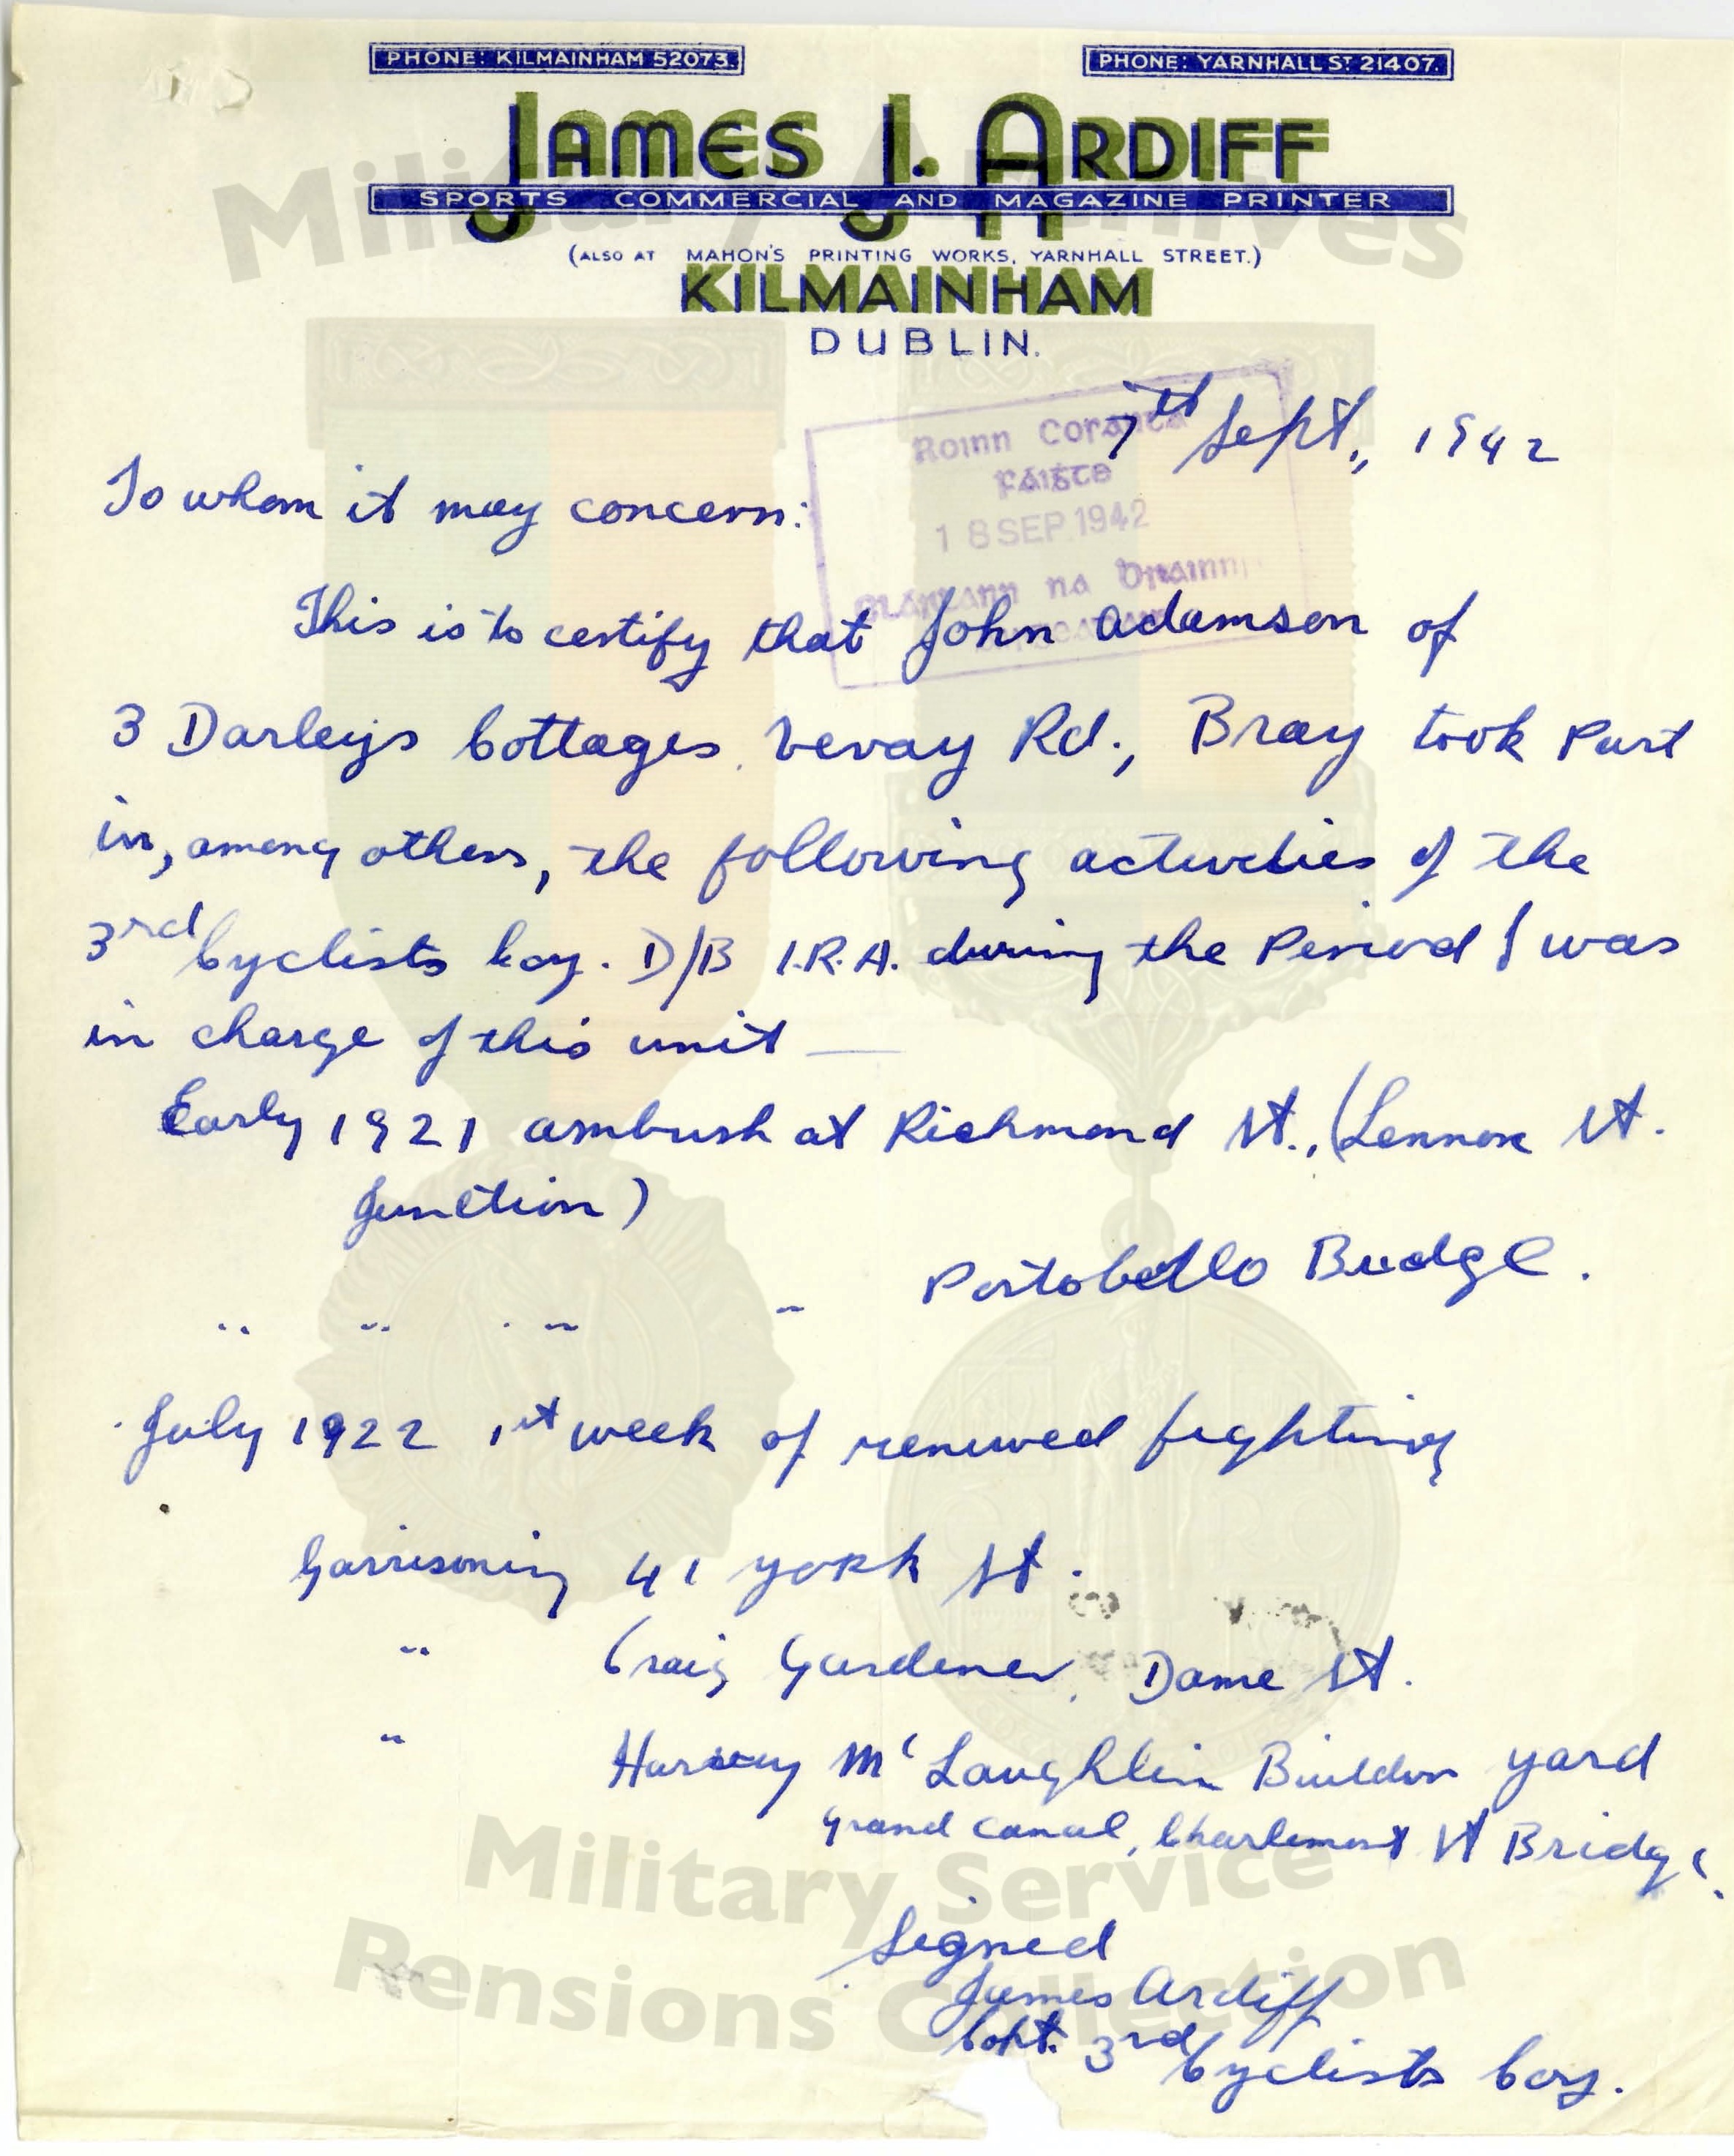 PHONE: KILMAINHAM 52073.
PHONE: YARNHALL ST 21407.
JAMES J. ARDIFF
SPORTS COMMERCIAL AND MAGAZINE PRINTER
(ALSO AT MAHON'S PRINTING WORKS, YARNHALL STREET.)
KILMAINHAM
DUBLIN.
7th Sept., 1942
Roinn Cosanta
18 SEP 1942
na
To whom it may concern:
This is to certify that John Adamson of
3 Darleys Cottages, Vevay Rd., Bray took Part
in, among others, the following activities of the
3rd Cyclists Coy. D/B I.R.A. during the Period I was
in charge of this unit —
Early 1921 ambush at Richmond St., (Lennox St.
Junction)
" " " " Portobello Bridge.
July 1922 1st week of renewed fighting
Garrisoning 41 York St.
" Craig Gardener, Dame St.
" Harvey McLaughlin Builders yard
Grand Canal, Charlemont St Bridge.
Signed
James Ardiff
Capt. 3rd Cyclists Coy.
Military Archives
Military Service
Pensions Collection